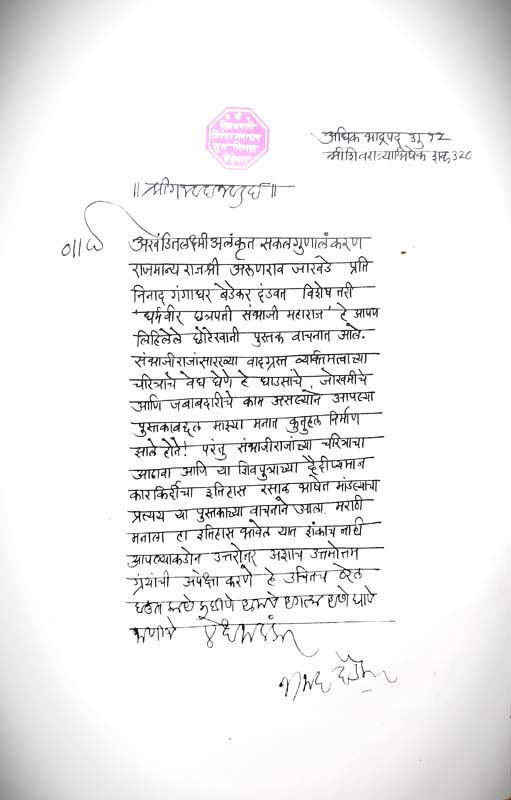 अधिक भाद्रपद शु १२
श्रीशिवराज्याभिषेक शक ३२०
अखंडितलक्ष्मी अलंकृत सकलगुणालंकरण
राजमान्य राजश्री अरुणराव जाखडे प्रति
निनाद गंगाधर बेडेकर दंडवत विशेष तरी
'धर्मवीर छत्रपती संभाजी महाराज' हे आपण
लिहिलेले छोटेखानी पुस्तक वाचनात आले.
संभाजीराजांसारख्या वादग्रस्त व्यक्तिमत्वाच्या
चरित्राचे वेध घेणे हे धाडसाचे, जोखमीचे
आणि जबाबदारीचे काम असल्याने आपल्या
पुस्तकाबद्दल माझ्या मनात कुतुहल निर्माण
झाले होते! परंतु संभाजीराजांच्या चरित्राचा
आढावा आणि या शिवपुत्राच्या दैदीप्यमान
कारकिर्दीचा इतिहास रसाळ भाषेत मांडल्याचा
प्रत्यय या पुस्तकाच्या वाचनाने आला. मराठी
मनाला हा इतिहास भावेल यात शंकाच नाही
आपल्याकडोन उत्तरोत्तर अशाच उत्तमोत्तम
ग्रंथांची अपेक्षा करणे हे उचितच ठरेल